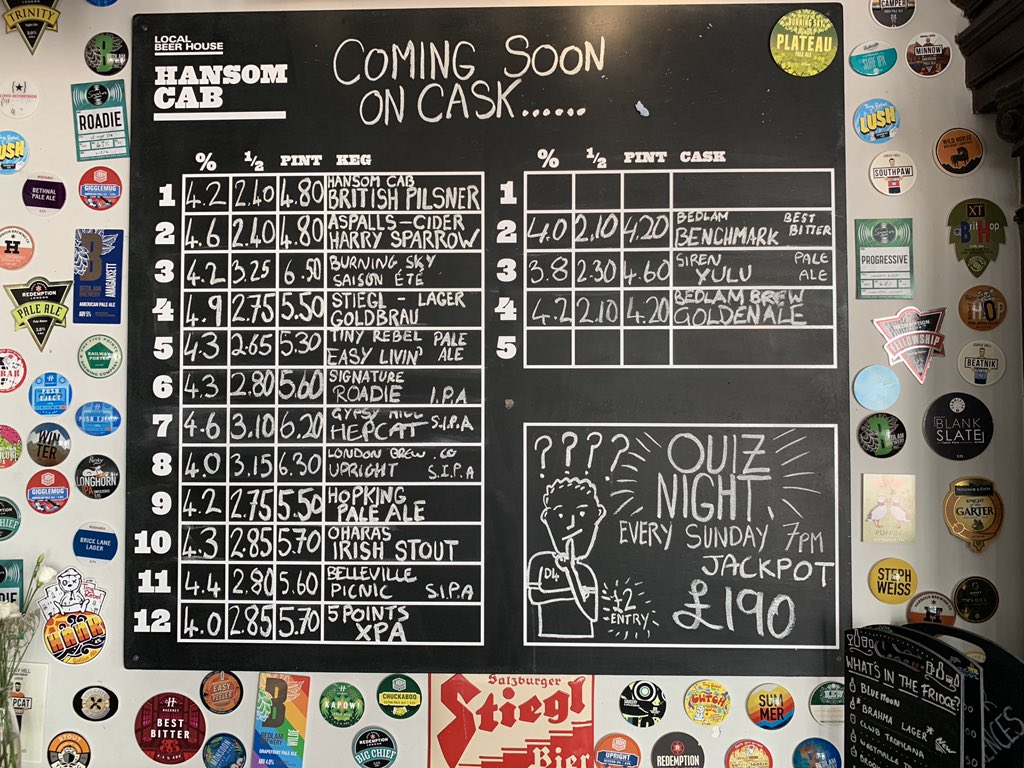 LOCAL
BEER HOUSE
HANSOM
CAB
COMING SOON
ON CASK......
% 1/2 PINT KEG
1 4.2 2.40 4.80 HANSOM CAB
BRITISH PILSNER
2 4.6 2.40 4.80 ASPALLS-CIDER
HARRY SPARROW
3 4.2 3.25 6.50 BURNING SKY
SAISON ÉTÉ
4 4.9 2.75 5.50 STIEGL - LAGER
GOLDBRAU
5 4.3 2.65 5.30 TINY REBEL PALE
EASY LIVIN' ALE
6 4.3 2.80 5.60 SIGNATURE
ROADIE I.P.A
7 4.6 3.10 6.20 GYPSY HILL
HEPCAT S.I.P.A
8 4.0 3.15 6.30 LONDON BREW.CO
UPRIGHT S.I.P.A
9 4.2 2.75 5.50 HOPKING
PALE ALE
10 4.3 2.85 5.70 OHARAS
IRISH STOUT
11 4.4 2.80 5.60 BELLEVILLE
PICNIC S.I.P.A
12 4.0 2.85 5.70 5 POINTS
XPA
% 1/2 PINT CASK
1
2 4.0 2.10 4.20 BEDLAM BEST
BENCHMARK BITTER
3 3.8 2.30 4.60 SIREN PALE
YULU ALE
4 4.2 2.10 4.20 BEDLAM BREW
GOLDEN ALE
5
????
QUIZ
NIGHT
EVERY SUNDAY 7PM
JACKPOT
£190
£2
-ENTRY-
BURNING SKY
PLATEAU
PALE ALE
TRINITY
ROADIE
LUSH
BETHNAL PALE ALE
GIGGLEMUG
REDEMPTION
PALE ALE
BEDLAM BREWERY
AMAGANSETT
AMERICAN PALE ALE
ABV 5%
RAILWAY
PORTER
PUSH
EJECT
WINTER
LONGHORN
IPA
GIGGLEMUG
BRICK LANE
LAGER
CAMPER
SURF IPA
MINNOW
LUSH
SOUTHPAW
WILD HORSE
XT
PROGRESSIVE
FELLOWSHIP
HOP
BEATNIK
BLANK
SLATE
PUFFIN
GARTER
STEPH
WEISS
HACKNEY
BEST
BITTER
EASY
PEELER
KAPOW!
CHUCKABOO
BIG CHIEF
Salzburger
Stiegl
Bier
UPRIGHT
REDEMPTION
SUM
MER
WHAT'S IN THE FRIDGE?
BLUE MOON
BRAHMA LAGER
CLUB TROPICANA